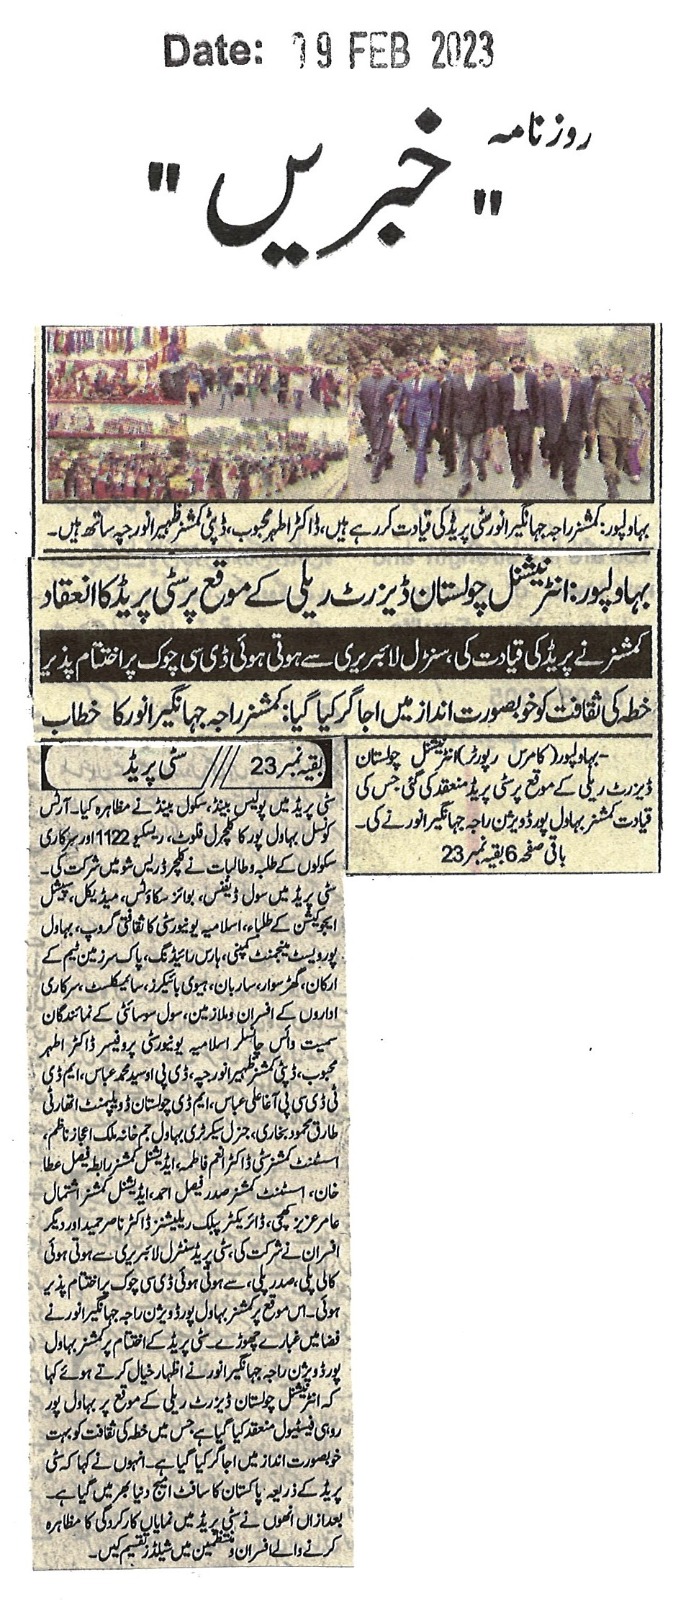 Date: 19 FEB 2023
روزنامہ
"خبریں"
بہاولپور: کمشنر راجہ جہانگیر انور سٹی پریڈ کی قیادت کر رہے ہیں، ڈاکٹر اطہر محبوب، ڈپٹی کمشنر ظہیر انور جپہ ساتھ ہیں۔
بہاولپور: انٹرنیشنل چولستان ڈیزرٹ ریلی کے موقع پر سٹی پریڈ کا انعقاد
کمشنر نے پریڈ کی قیادت کی، سنٹرل لائبریری سے ہوتی ہوئی ڈی سی چوک پر اختتام پذیر
خطہ کی ثقافت کو خوبصورت انداز میں اجاگر کیا گیا: کمشنر راجہ جہانگیر انور کا خطاب
بہاولپور (کامرس رپورٹر) انٹرنیشنل چولستان
ڈیزرٹ ریلی کے موقع پر سٹی پریڈ منعقد کی گئی جس کی
قیادت کمشنر بہاول پور ڈویژن راجہ جہانگیر انور نے کی۔
باقی صفحہ 6 بقیہ نمبر 23
بقیہ نمبر 23 /// سٹی پریڈ
سٹی پریڈ میں پولیس بینڈ، سکول بینڈ نے مظاہرہ کیا۔ آرٹس
کونسل بہاول پور کا کلچرل فلوٹ، ریسکیو 1122 اور سرکاری
سکولوں کے طلبہ و طالبات نے کلچر ڈریس شو میں شرکت کی۔
سٹی پریڈ میں سول ڈیفنس، بوائز سکاؤٹس، میڈیکل، سپیشل
ایجوکیشن کے طلباء، اسلامیہ یونیورسٹی کا ثقافتی گروپ، بہاول
پور ویسٹ مینجمنٹ کمپنی، ہارس رائیڈنگ، پاک سرزمین ٹیم کے
ارکان، گھڑ سوار، ساربان، ہیوی بائیکرز، سائیکلسٹ، سرکاری
اداروں کے افسران و ملازمین، سول سوسائٹی کے نمائندگان
سمیت وائس چانسلر اسلامیہ یونیورسٹی پروفیسر ڈاکٹر اطہر
محبوب، ڈپٹی کمشنر ظہیر انور جپہ، ڈی پی او سید محمد عباس، ایم ڈی
ٹی ڈی سی پی آغا علی عباس، ایم ڈی چولستان ڈویلپمنٹ اتھارٹی
طارق محمود بخاری، جنرل سیکرٹری بہاول جم خانہ ملک اعجاز ناظم،
اسسٹنٹ کمشنر سٹی ڈاکٹر انعم فاطمہ، ایڈیشنل کمشنر رابطہ فیصل عطا
خان، اسسٹنٹ کمشنر صدر فیصل احمد، ایڈیشنل کمشنر اشتمال
عامر عزیز کھچی، ڈائریکٹر پبلک ریلیشنز ڈاکٹر ناصر حمید اور دیگر
افسران نے شرکت کی، سٹی پریڈ سنٹرل لائبریری سے ہوتی ہوئی
کالی پلی، صدر پلی، سے ہوتی ہوئی ڈی سی چوک پر اختتام پذیر
ہوئی۔ اس موقع پر کمشنر بہاول پور ڈویژن راجہ جہانگیر انور نے
فضا میں غبارے چھوڑے۔ سٹی پریڈ کے اختتام پر کمشنر بہاول
پور ڈویژن راجہ جہانگیر انور نے اظہار خیال کرتے ہوئے کہا
کہ انٹرنیشنل چولستان ڈیزرٹ ریلی کے موقع پر بہاول پور
روہی فیسٹیول منعقد کیا گیا ہے جس میں خطہ کی ثقافت کو بہت
خوبصورت انداز میں اجاگر کیا گیا ہے۔ انہوں نے کہا کہ سٹی
پریڈ کے ذریعہ پاکستان کا سافٹ امیج دنیا بھر میں گیا ہے۔
بعد ازاں انھوں نے سٹی پریڈ میں نمایاں کارکردگی کا مظاہرہ
کرنے والے افسران و منتظمین میں شیلڈز تقسیم کیں۔